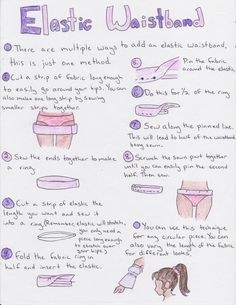 Elastic Waistband
① There are multiple ways to add an elastic waistband,
this is just one method.
① Cut a strip of fabric long enough
to easily go around your hips. You can
also make one long strip by sewing
smaller strips together.
2. Sew the ends together to make
a ring.
③ Cut a strip of elastic the
length you want and sew it
into a ring (Remember elastic will stretch,
you only need a
piece long enough
to stretch over
your hips)
④ Fold the fabric ring in
half and insert the elastic.
⑤ Pin the fabric
around the elastic.
⑥ Do this for 1/2 of the ring
⑦ Sew along the pinned line.
This will lead to half of the waistband
being sewn.
⑧ Scrunch the sewn part together
until you can entirely pin the second
half. Then sew.
You can use this technique
for any circular piece. You can
also vary the length of the fabric
for different looks.